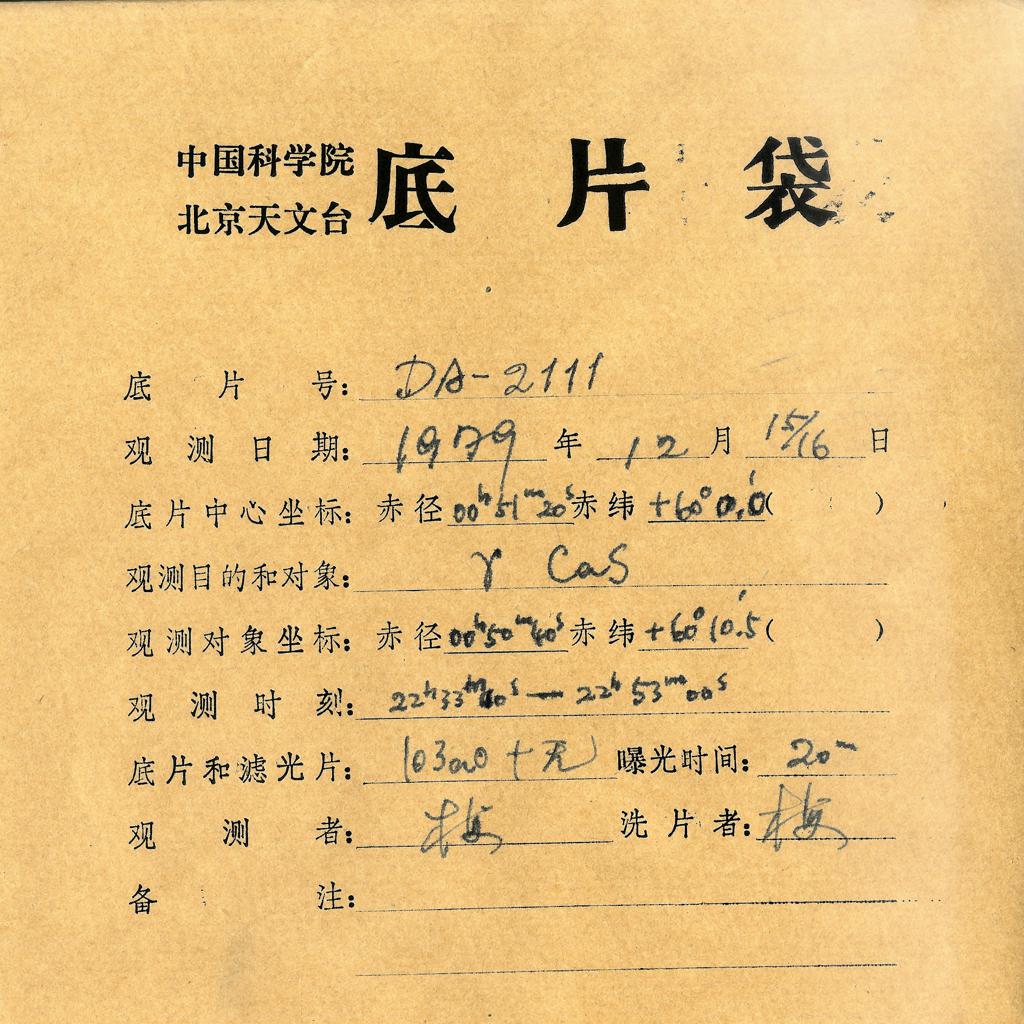 中国科学院
北京天文台
底片袋
底片号: DA-2111
观测日期: 1979年12月15/16日
底片中心坐标: 赤径00ʰ51ᵐ20ˢ赤纬+60°0.0′( )
观测目的和对象: γ CaS
观测对象坐标: 赤径00ʰ50ᵐ40ˢ赤纬+60°10.5′( )
观测时刻: 22ʰ33ᵐ00ˢ — 22ʰ53ᵐ00ˢ
底片和滤光片: 103aO+无 曝光时间: 20ᵐ
观测者: 梅 洗片者: 梅
备注: